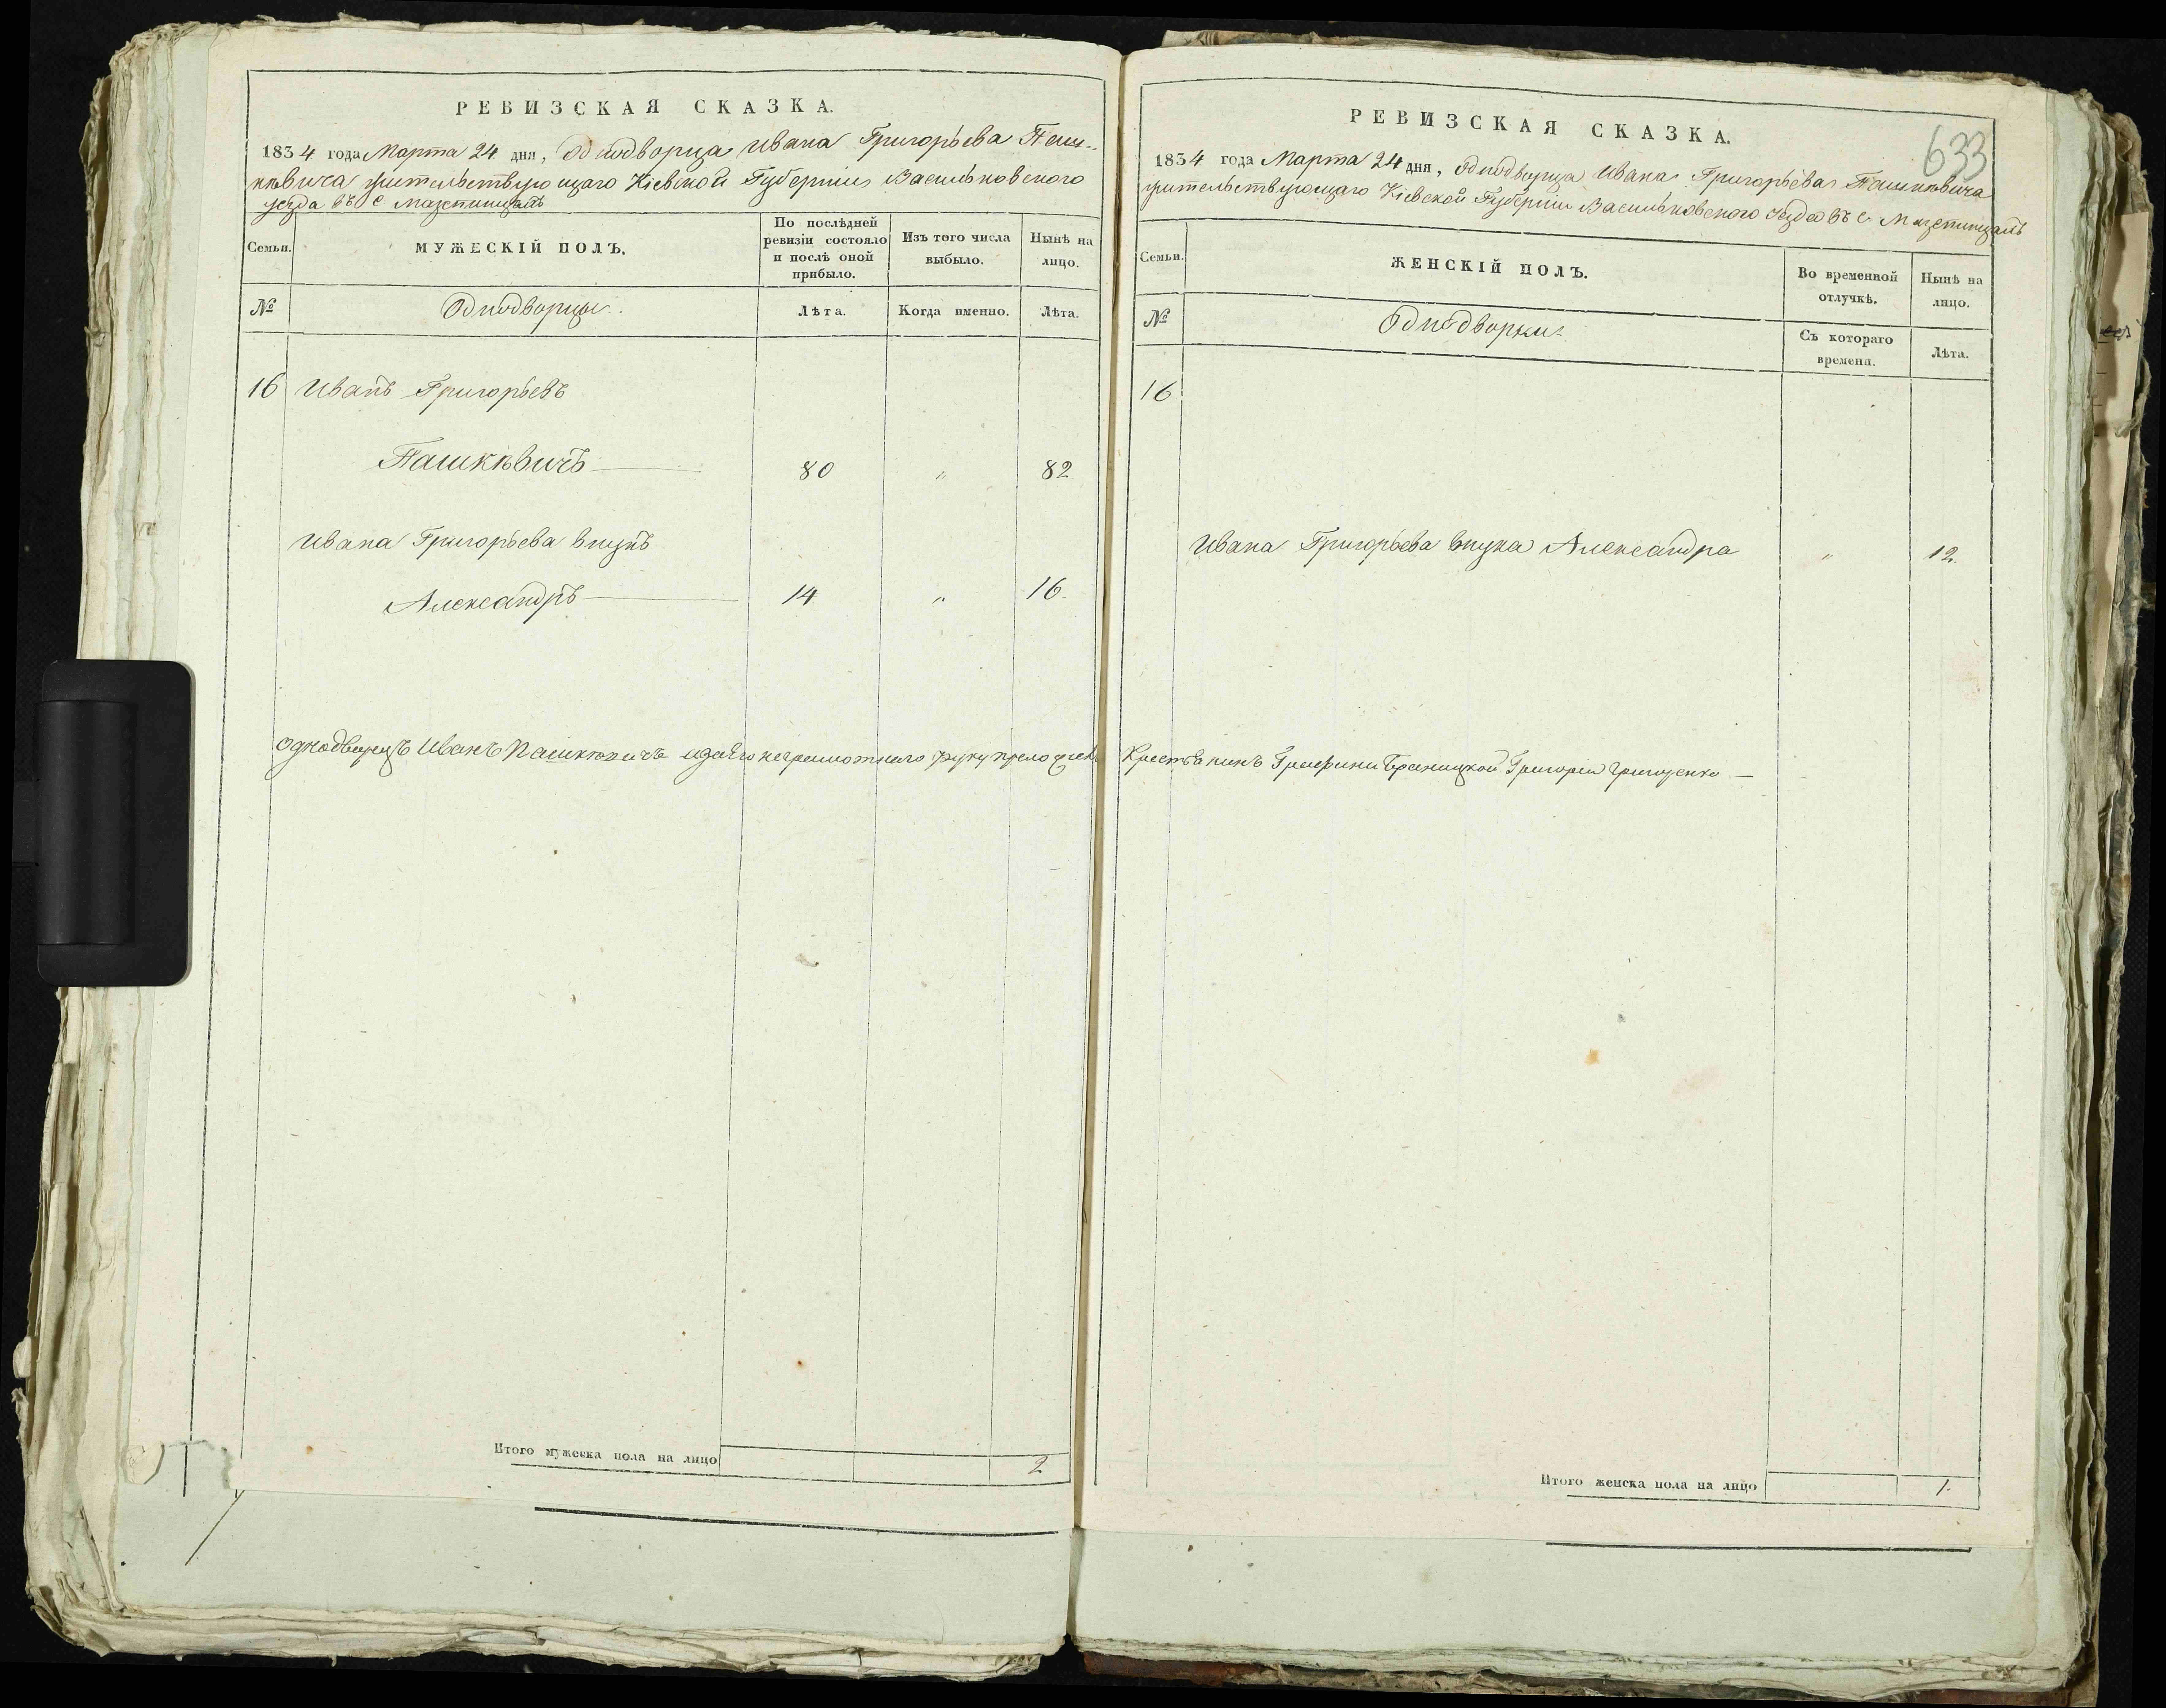 РЕВИЗСКАЯ СКАЗКА.
1834 года Марта 24 дня, Однодворца Ивана Григорьева Паш-
кѣвича жительствующаго Кіевской Губерніи Васильковского
уезда въ с Мазепинцахъ
Семьи.
МУЖЕСКІЙ ПОЛЪ.
По послѣдней ревизіи состояло и послѣ оной прибыло.
Изъ того числа выбыло.
Нынѣ на лицо.
№
Однодворцы.
Лѣта.
Когда именно.
Лѣта.
16 Иванъ Григорьевъ
Пашкѣвичъ 80 „ 82
Ивана Григорьева внукъ
Александръ 14 „ 16.
Однодворецъ Иванъ Пашкевичъ а за его неграмотнаго руку преложив
Итого мужеска пола на лицо 2
633
РЕВИЗСКАЯ СКАЗКА.
1834 года Марта 24 дня, Однодворца Ивана Григорьева Пашкѣвича
жительствующаго Кіевской Губерніи Васильковского уезда въ с. Мазепинцахъ
Семьи.
ЖЕНСКІЙ ПОЛЪ.
Во временной отлучкѣ.
Нынѣ на лицо.
№
Однодворки.
Съ котораго времени.
Лѣта.
16
Ивана Григорьева внука Александра „ 12.
Крестянинъ Графини Браницкой Григорій Грищенко
Итого женска пола на лицо 1.